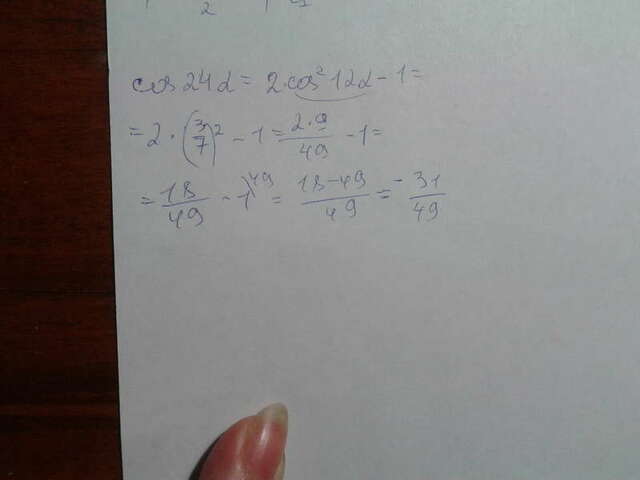 cos 24α = 2 cos² 12α - 1 =
= 2 · (3/7)² - 1 = 2·9/49 - 1 =
= 18/49 - 1\49 = 18-49/49 = - 31/49